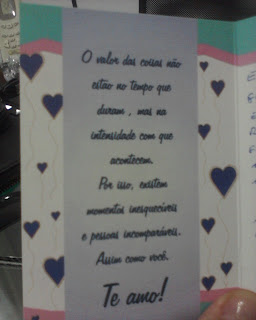 O valor das coisas não
estão no tempo que
duram, mas na
intensidade com que
acontecem.
Por isso, existem
momentos inesquecíveis
e pessoas incomparáveis.
Assim como você.
Te amo!